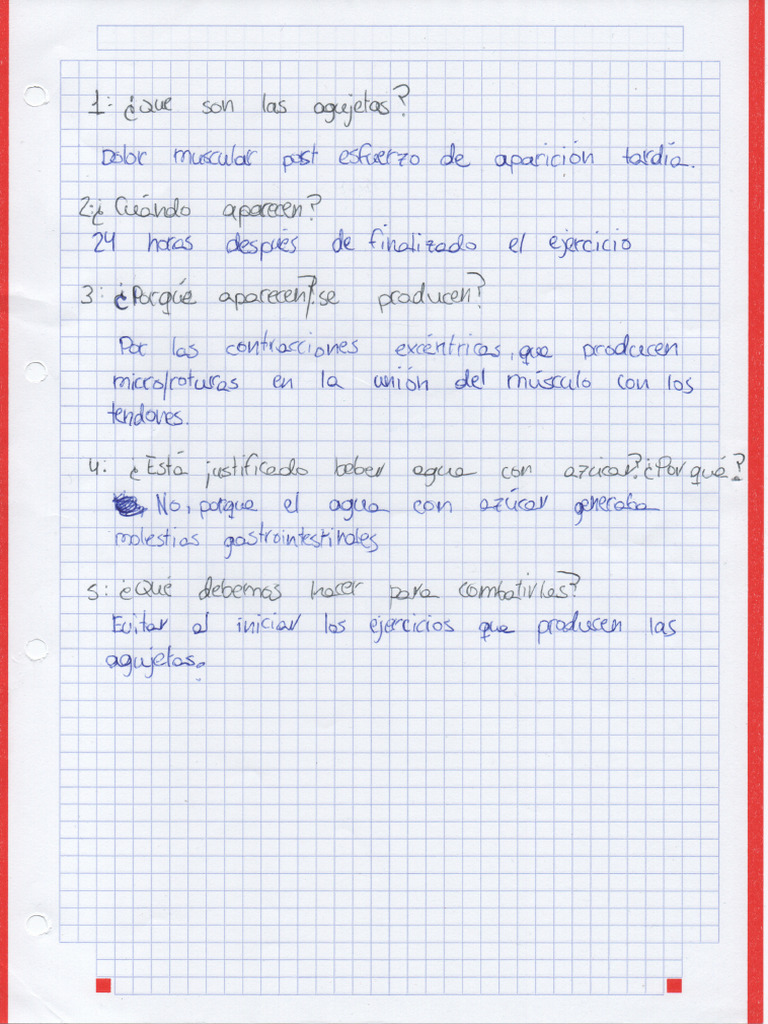 1: ¿Que son las agujetas?
Dolor muscular post esfuerzo de aparición tardía.
2: ¿Cuándo aparecen?
24 horas después de finalizado el ejercicio
3: ¿Porqúe aparecen?/se producen?
Por las contracciones excéntricas, que producen
micro/roturas en la unión del músculo con los
tendones.
4: ¿Está justificado beber agua con azúcar? ¿Por qué?
No, porque el agua con azúcar generaba
molestias gastrointestinales
5: ¿Qué debemos hacer para combatirlas?
Evitar al iniciar los ejercicios que producen las
agujetas.